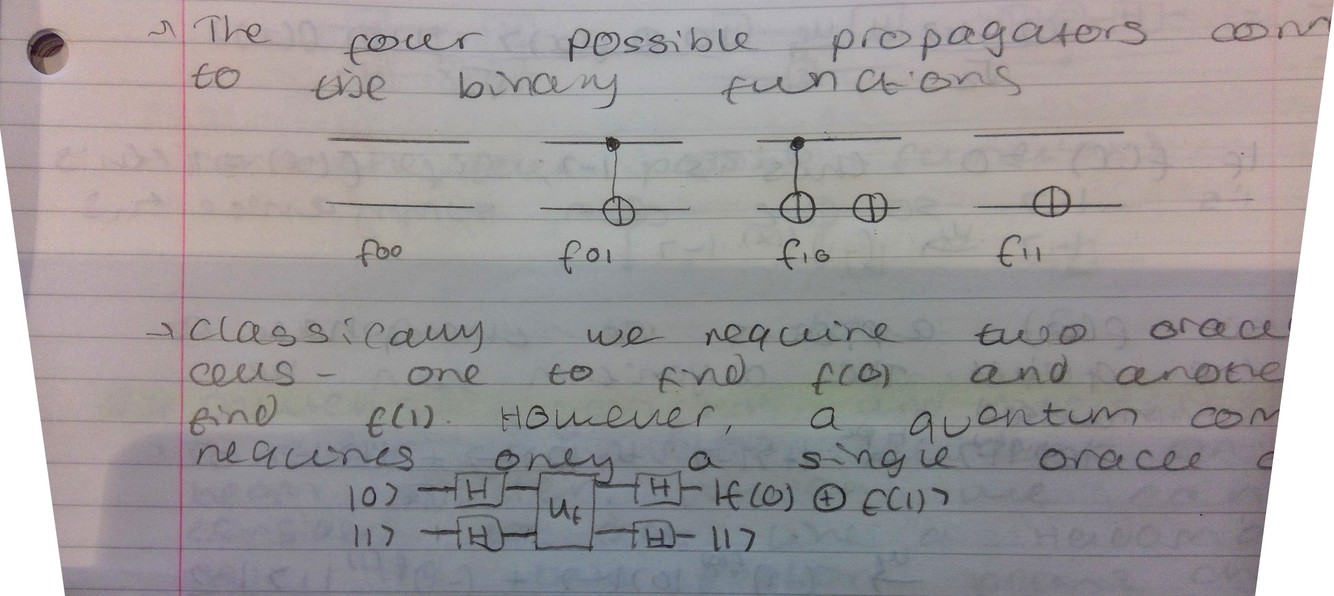 → The four possible propagators
to the binary functions
f00 f01 f10 f11
→ classically we require two
calls - one to find f(0) and
find f(1). However, a quantum
requires only a single oracle
|0> H U_f H |f(0) ⊕ f(1)>
|1> H H |1>